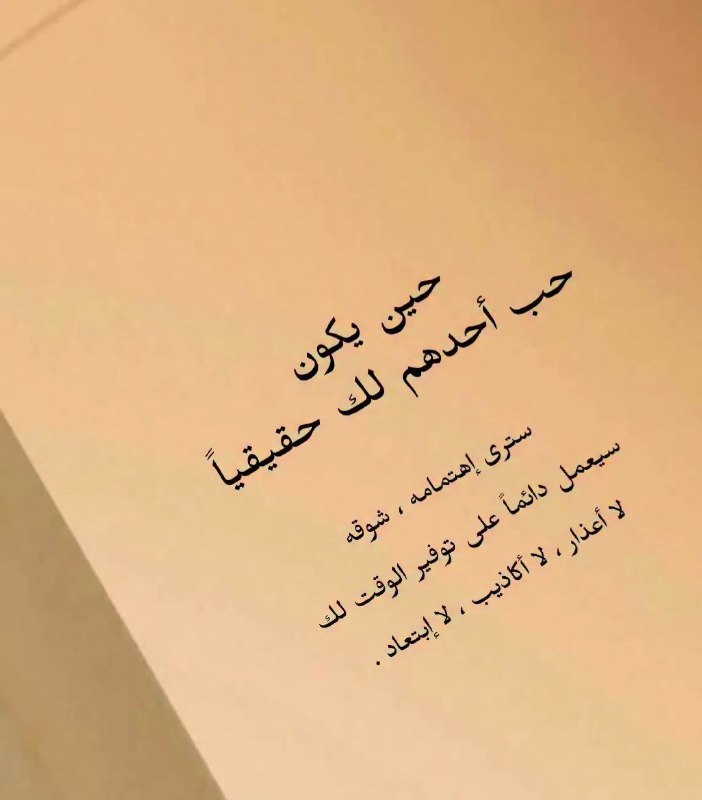 حين يكون
حب أحدهم لك حقيقياً
سترى إهتمامه ، شوقه
سيعمل دائماً على توفير الوقت لك
لا أعذار ، لا أكاذيب ، لا إبتعاد .